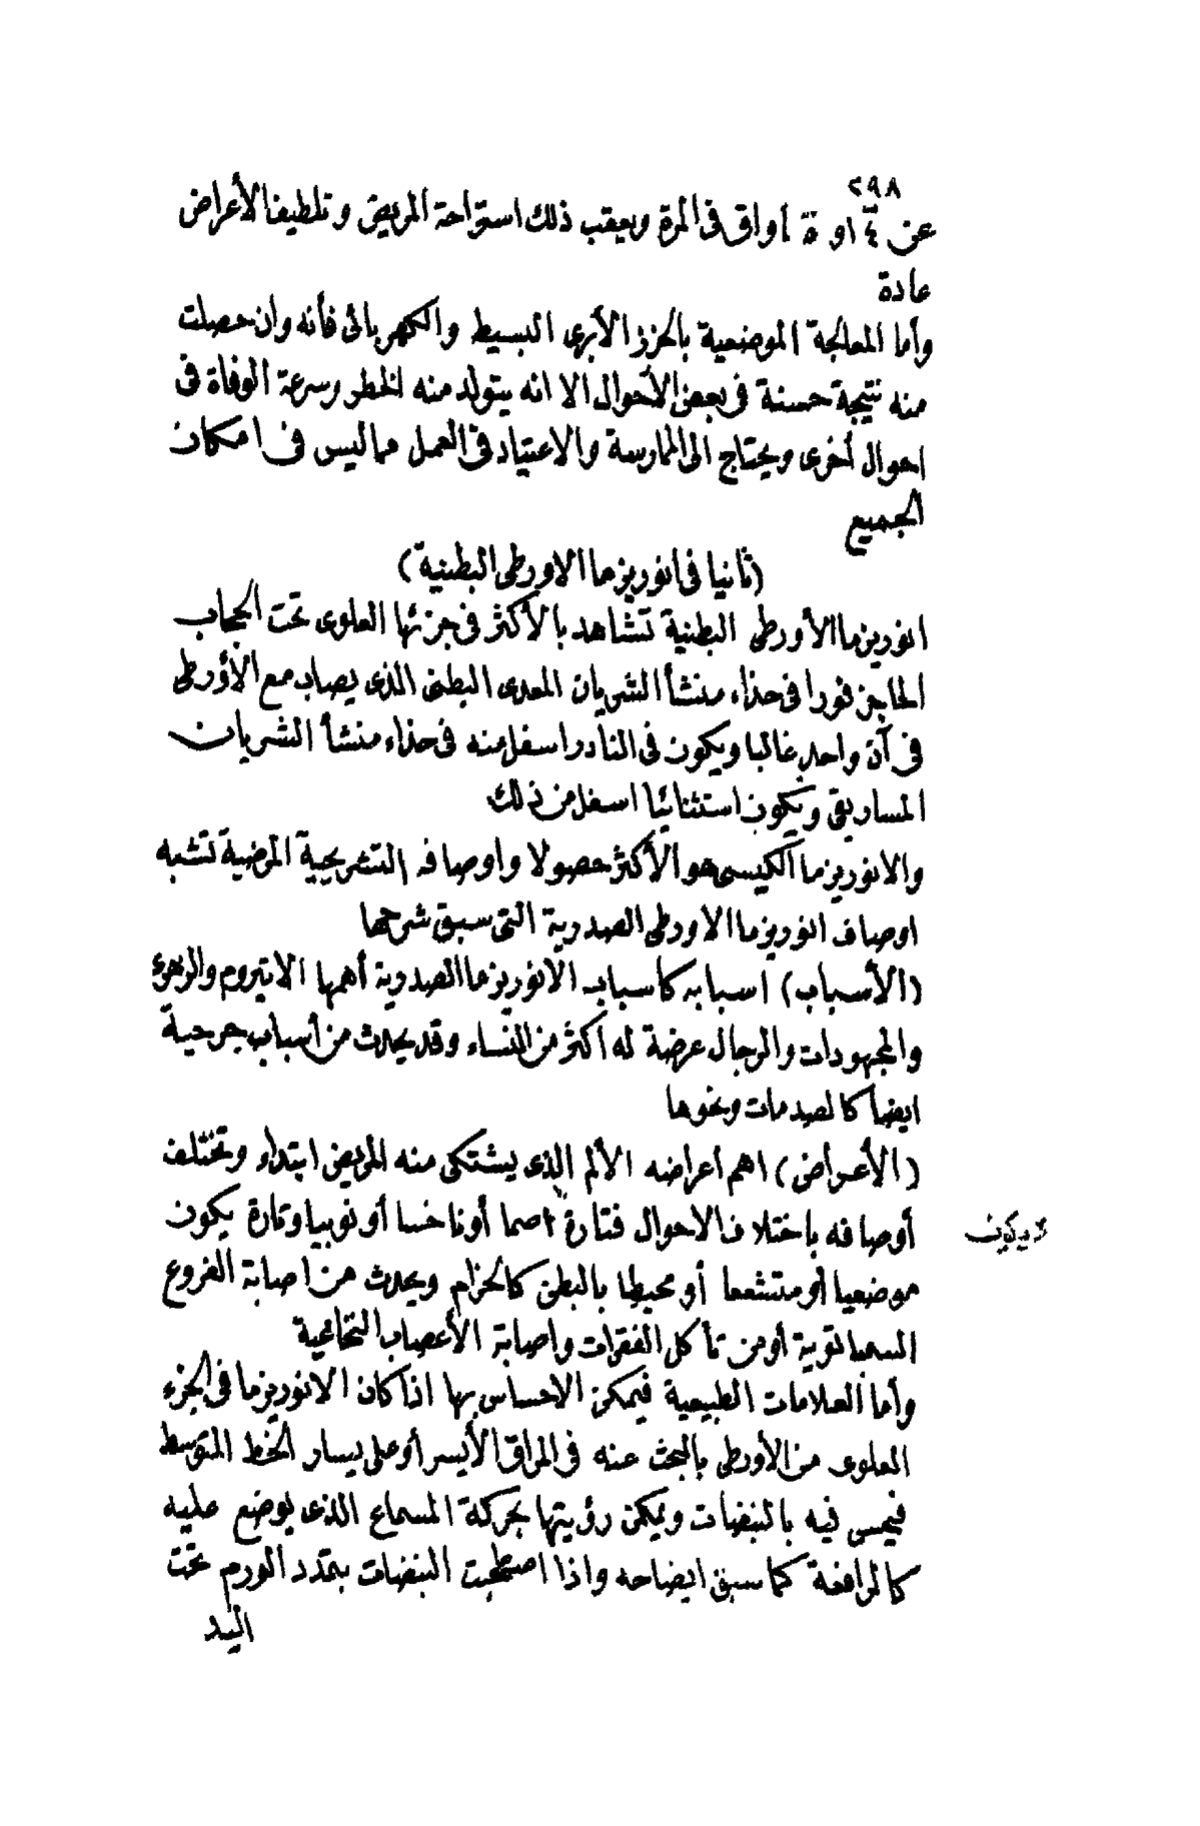 ٢٩٨
عن ٤ او ٥ أواق فى المرة ويعقب ذلك استراحة المريض وتلطيف الأعراض
عادة
وأما المعالجة الموضعية بالخرز الأبرى البسيط والكهربائى فأنه وان حصلت
منه نتيجة حسنة فى بعض الأحوال الا انه يتولد منه الخطر وسرعة الوفاة فى
احوال أخرى ويحتاج الى الممارسة والاعتياد فى العمل مما ليس فى امكان
الجميع
(ثانيا فى انوريزما الاورطى البطنية)
انوريزما الأورطى البطنية تشاهد بالأكثر فى جزئها العلوى تحت الحجاب
الحاجز فورا فى حذاء منشأ الشريان المعدى البطنى الذى يصاب مع الأورطى
فى آن واحد غالبا ويكون فى النادر اسفل منه فى حذاء منشأ الشريان
المساريقى ويكون استثنائيا اسفل من ذلك
والانوريزما الكيسى هو الأكثر حصولا واوصافه التشريحية المرضية تشبه
اوصاف انوريزما الاورطى الصدرية التى سبق شرحها
(الأسباب) اسبابه كاسباب الانوريزما الصدرية أهمها الاتيروم والزهرى
والمجهودات والرجال عرضة له اكثر من النساء وقد يحدث من أسباب جرحية
ايضا كالصدمات ونحوها
(الأعراض) اهم اعراضه الألم الذى يشتكى منه المريض ابتداء وتختلف
أوصافه باختلاف الاحوال فتارة اصما أو ناخسا أو نوبيا وتارة يكون
لا يكون
موضعيا أو متشععا أو محيطا بالبطن كالحزام ويحدث من اصابة الفروع
السمباتوية أو من تأكل الفقرات واصابة الأعصاب النخاعية
وأما العلامات الطبيعية فيمكن الاحساس بها اذا كان الانوريزما فى الجزء
العلوى من الأورطى بالبحث عنه فى المراق الأيسر أو على يسار الخط المتوسط
فيحس فيه بالنبضات ويمكن رؤيتها بحركة المسماع الذى يوضع عليه
كالرافعة كما سبق ايضاحه واذا اصطحبت النبضات بتمدد الورم تحت
اليد